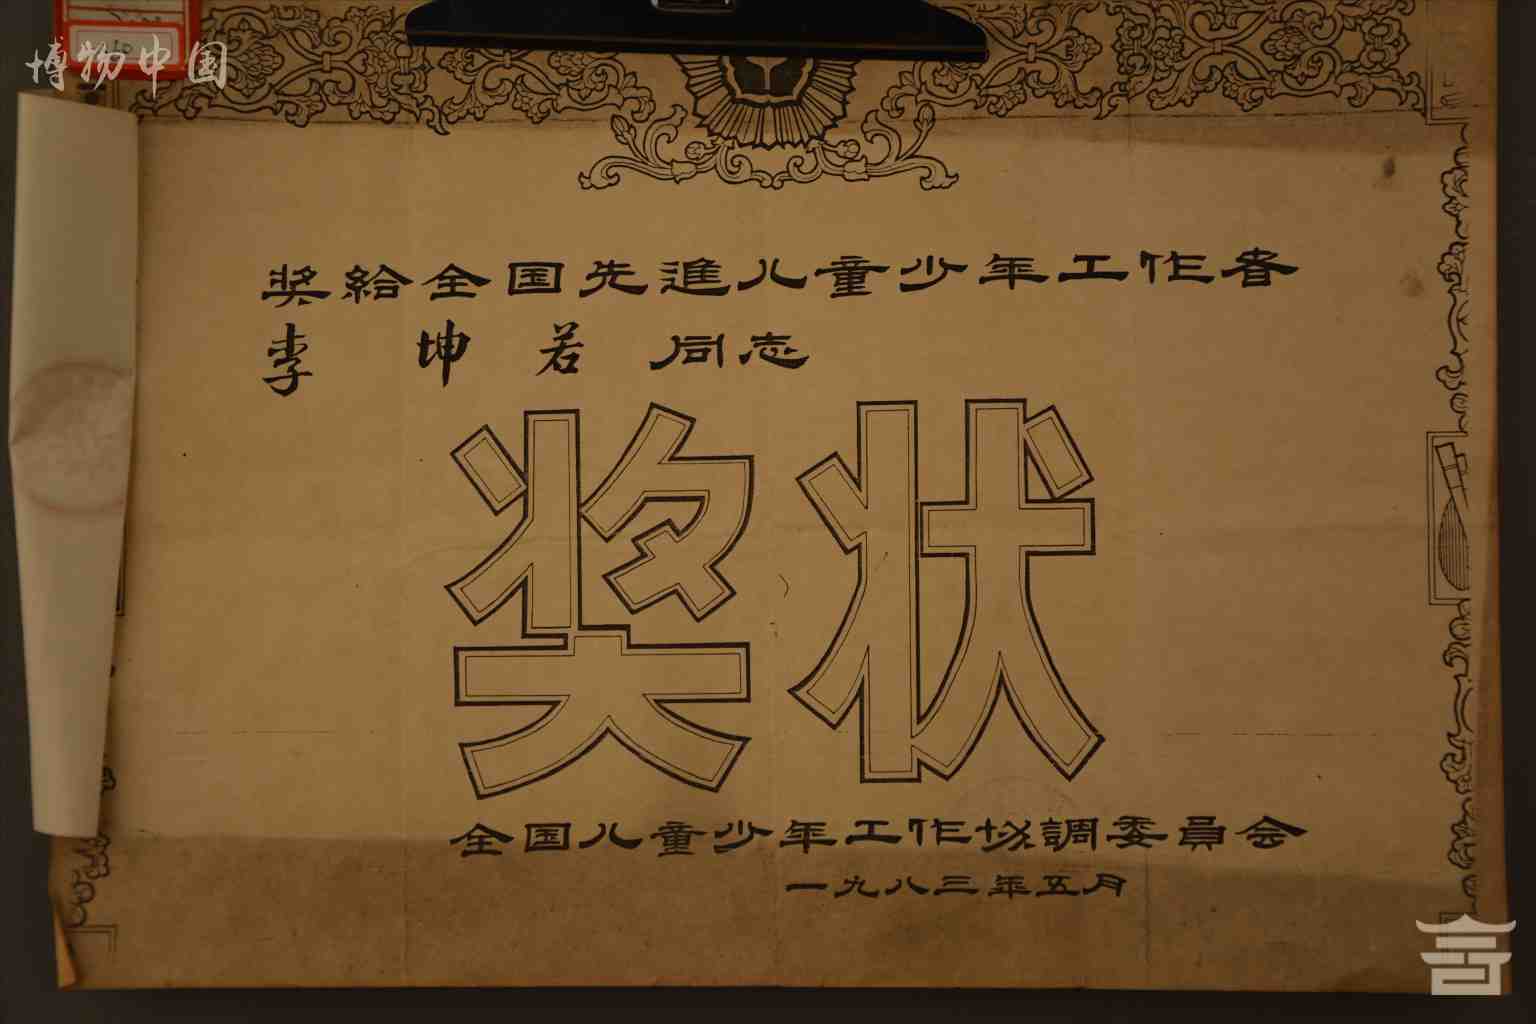 博物中国
奖給全国先進儿童少年工作者
李坤若同志
奖状
全国儿童少年工作协調委員会
一九八三年五月